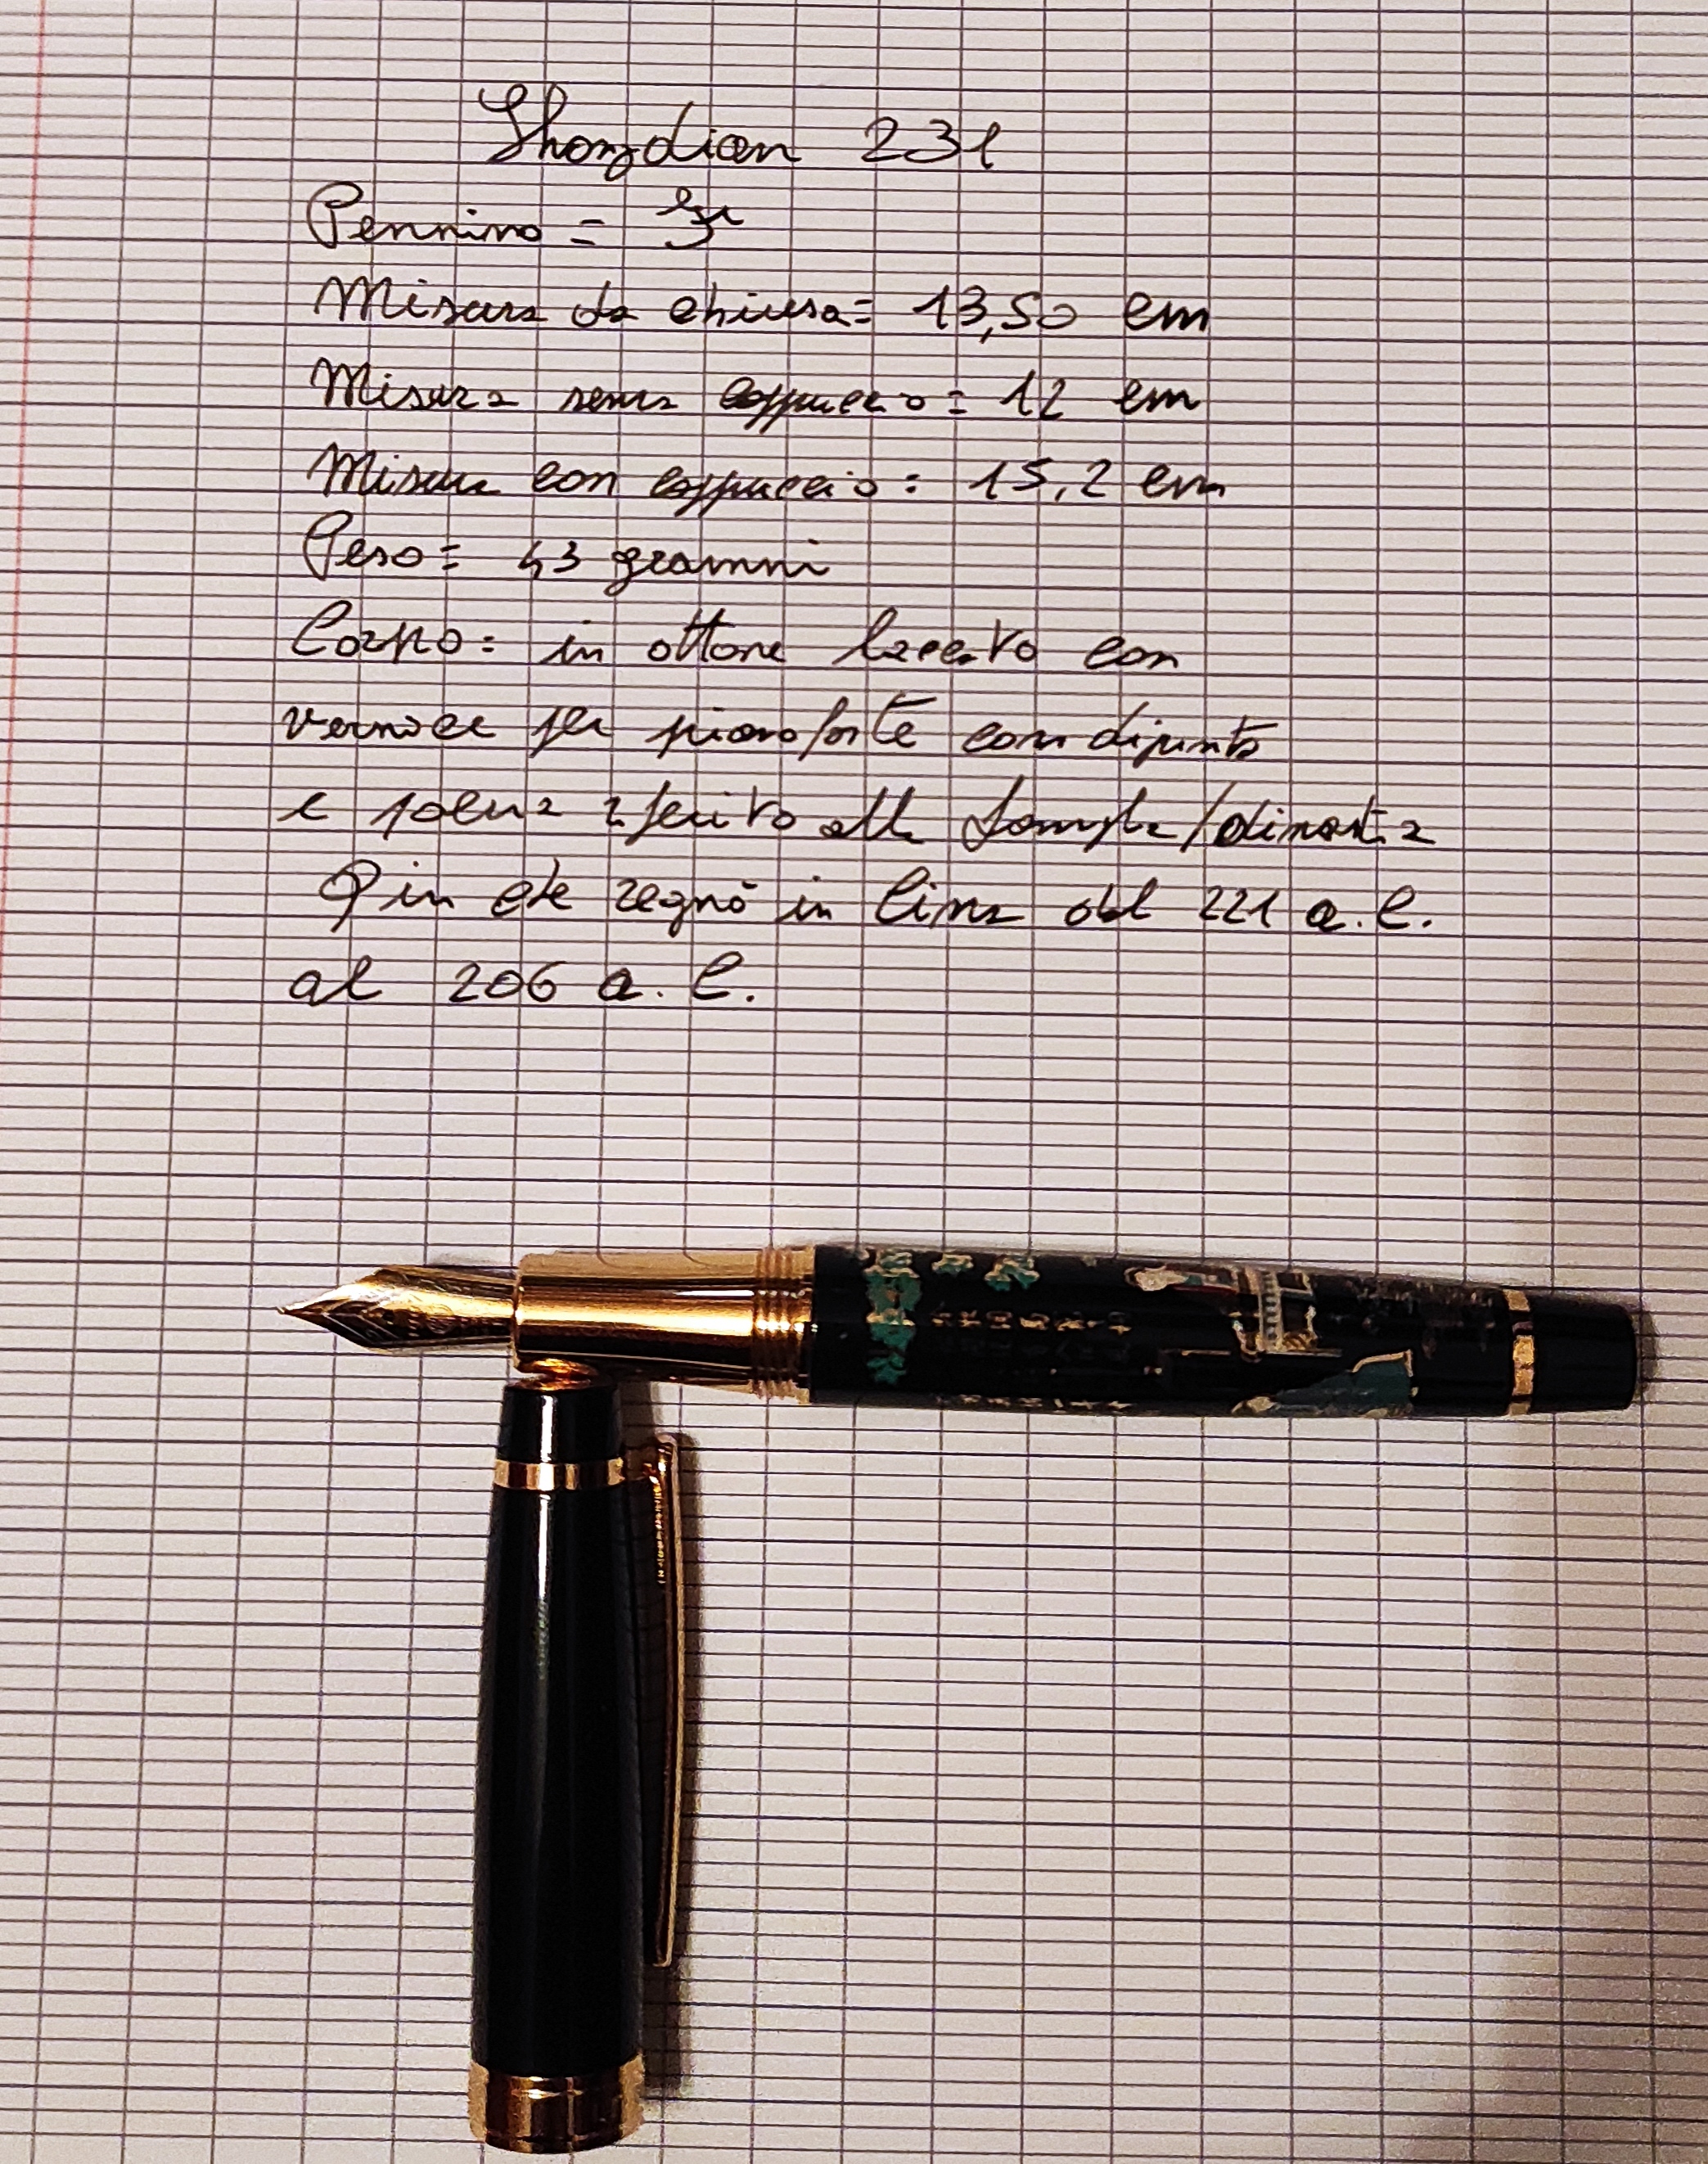 Shongdian 231
Pennino = F
Misura da chiusa = 13,50 cm
Misura senza cappuccio = 12 cm
Misura con cappuccio = 15,2 cm
Peso = 43 grammi
Corpo = in ottone laccato con
vernice per pianoforte con dipinto
e poema riferito alla famiglia/dinastia
Qin che regnò in Cina dal 221 a.C.
al 206 a.C.